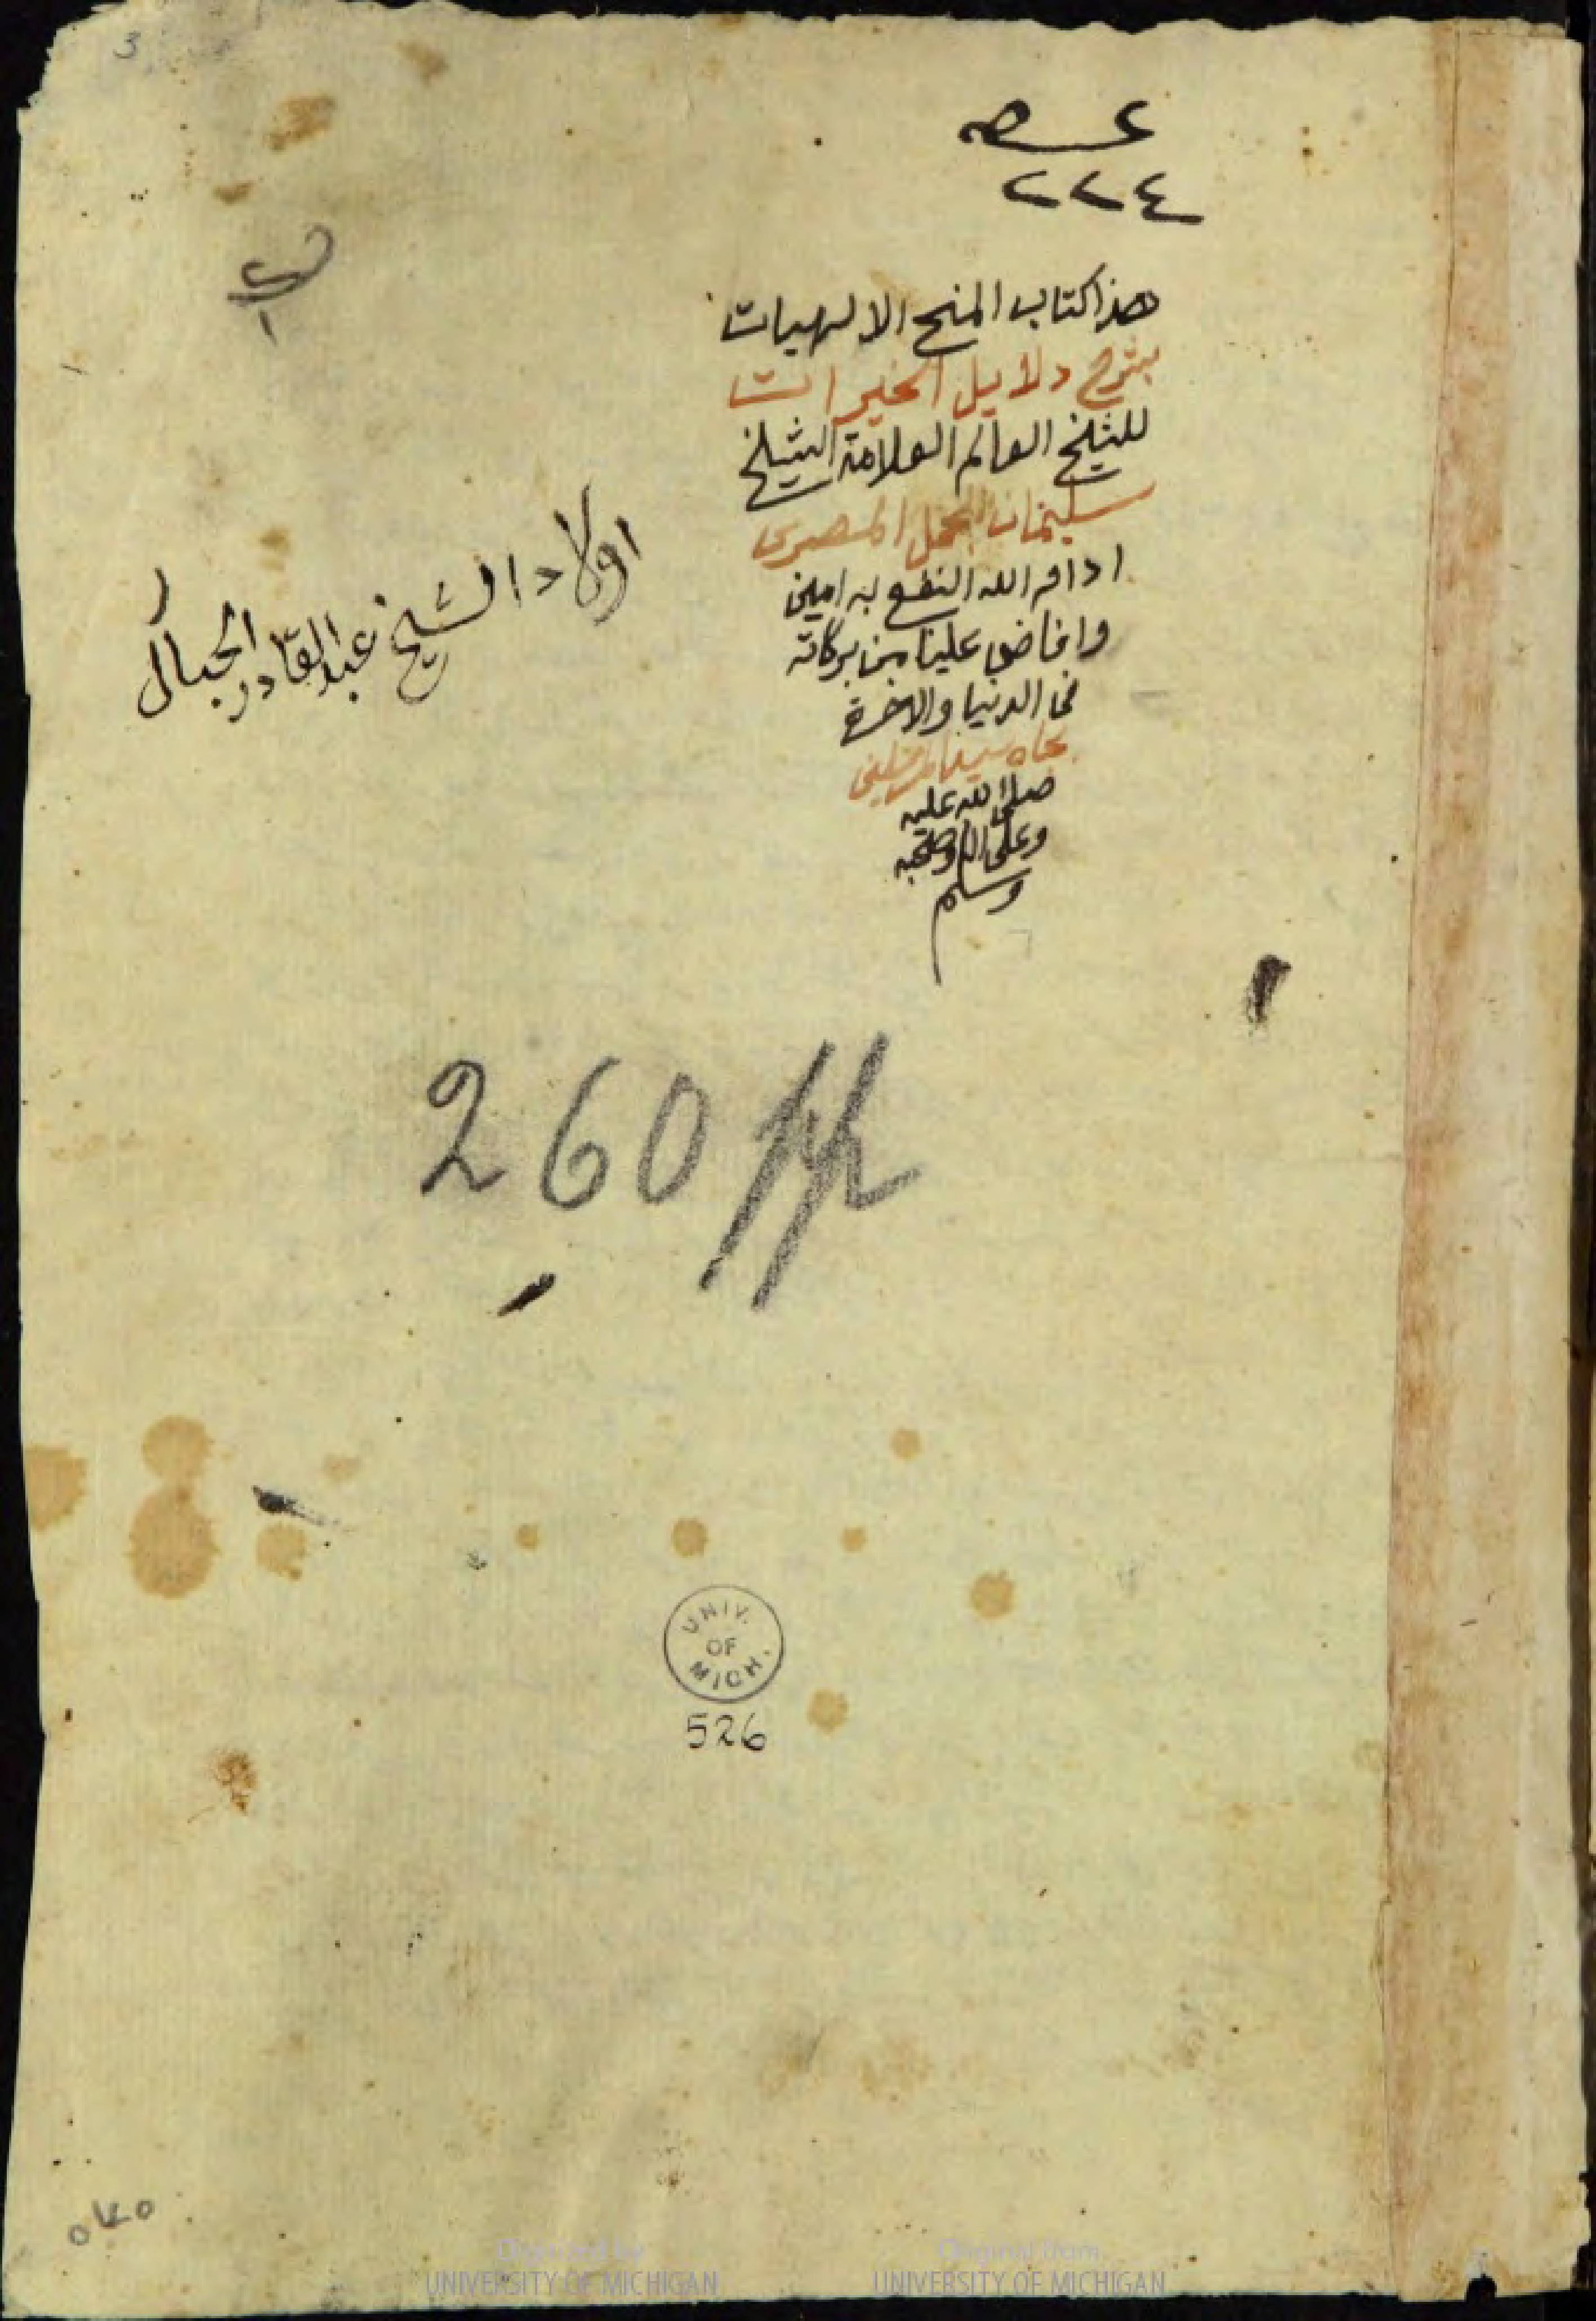 3
عـــــه
٢٢٤
هذا كتاب المنح الالهيات
بشرح دلايل الخيرات
للشيخ العالم العلامة الشيخ
سليمان الجمل المصرى
ادام الله النفع به امين
وافاض علينا من بركاته
فى الدنيا والاخرة
بجاه سيد المرسلين
صلى الله عليه
وعلى اله وصحبه
وسلم
اولاد الشيخ عبد القادر الحبال
260 pp
UNIV.
OF
MICH.
526
Digitized by
UNIVERSITY OF MICHIGAN
Original from
UNIVERSITY OF MICHIGAN